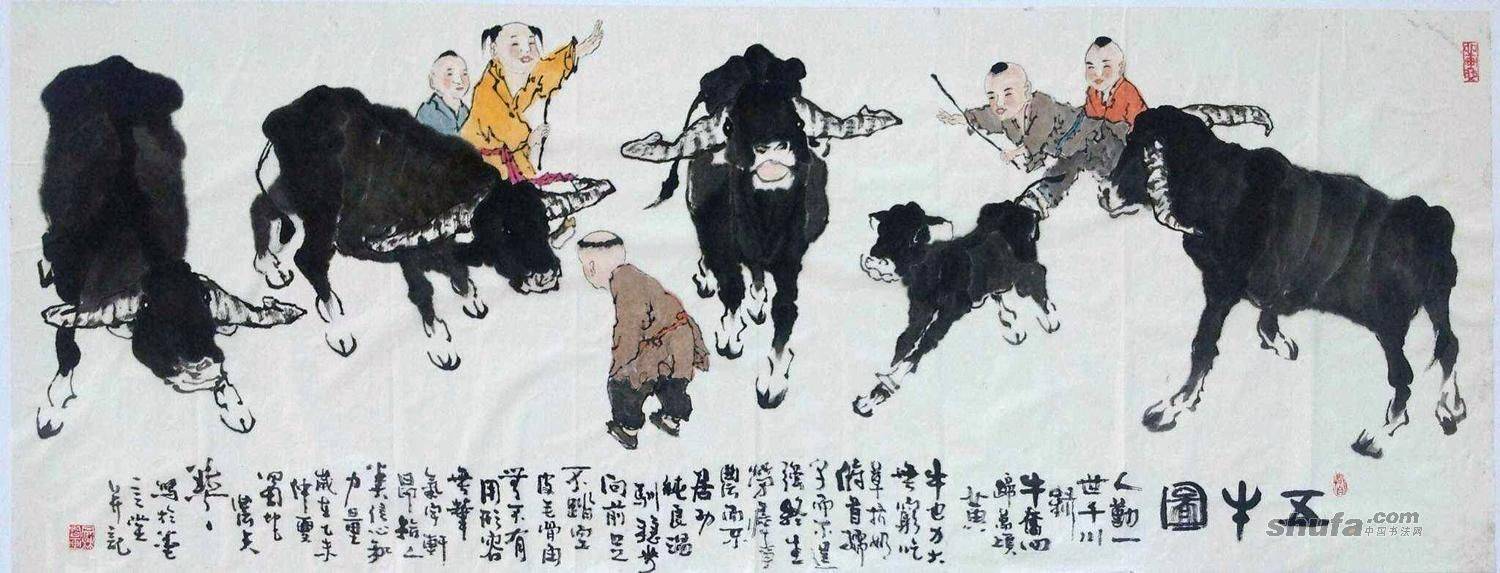 五牛圖
人勤一
世千川
牛奮四
蹄萬頃
黃
牛也力大
無窮吃
草擠奶
俯首孺
子而不逞
強終生
而不
居功
純良溫
馴穩步
向前足
不踏空
皮毛骨肉
無不有
用形容
無華
氣宇軒
昂給人
美信心和
力量
歲在乙未
仲夏
寫於
并記
shufa.com
中国书法网